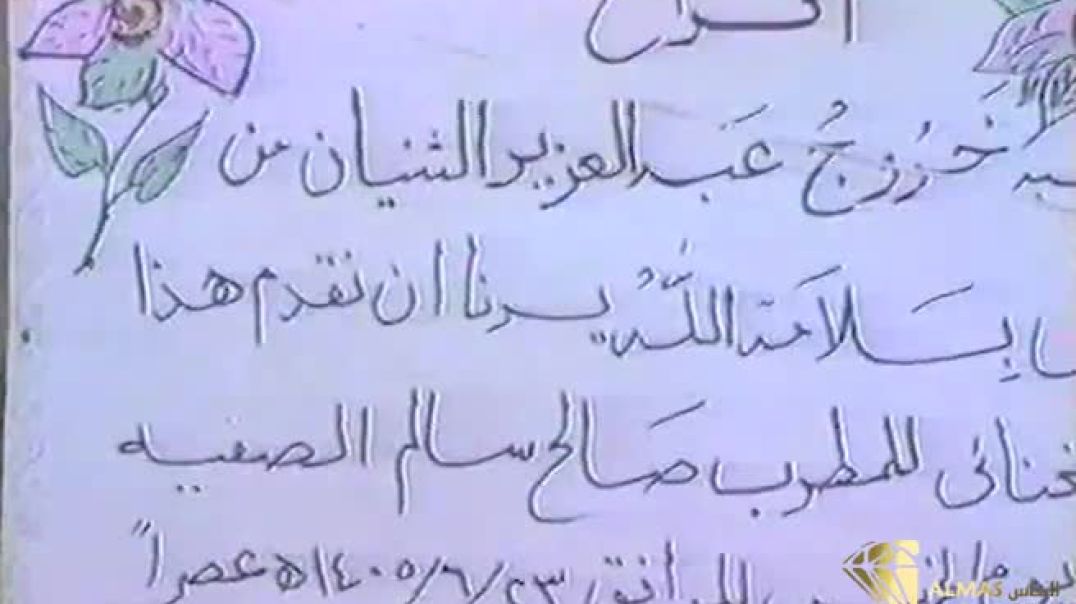 افراح
خَرُزجُ عَبدالعزيز الثنيان من
بِسَلامَة اللّهُ يسرنا ان نقدم هذا
للمطرب صَالح سالم الصفيه
الموافق ١٤٠٥/٦/٢٣ه عصراً
ALMAS الماس